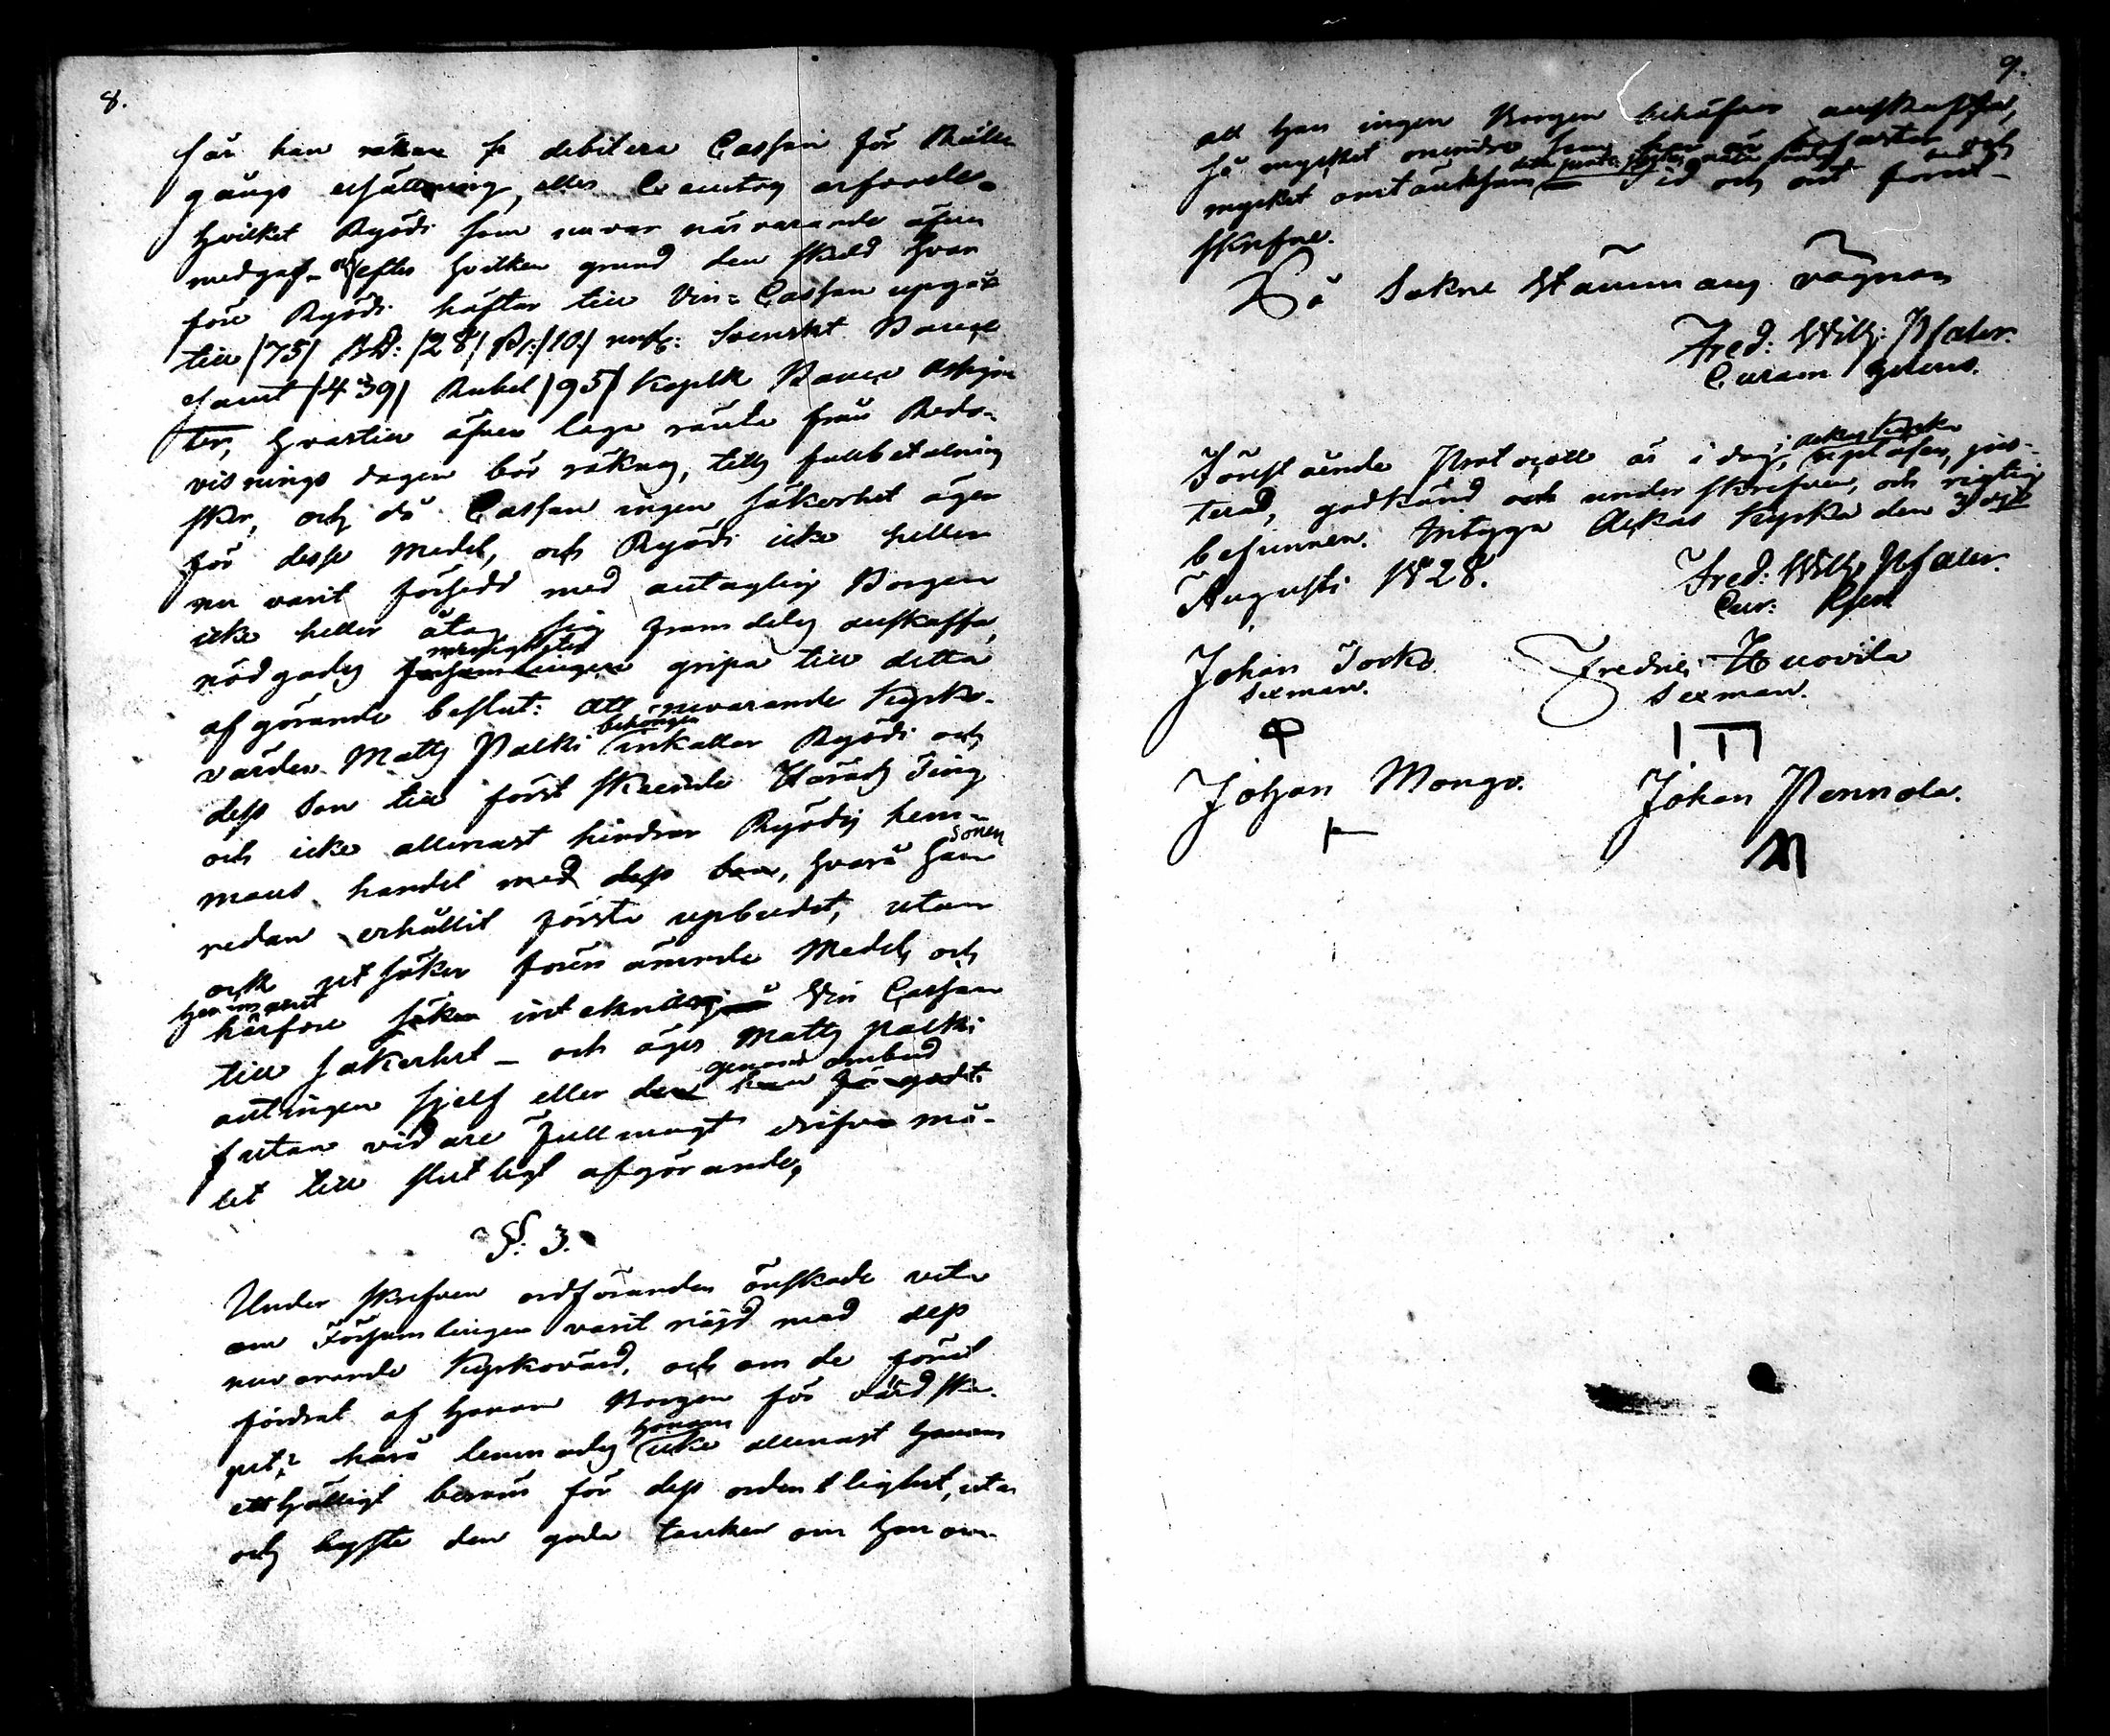 8.
får han räkna fr debitera Cassan för Rätte
gångs ersättning, eller C
hvilket Ryödi som nu var närvarande äfven
medgaf – och efter hvilken grund den skuld hvar
före Ryödi häftar till Vin= Cassan upgår
till /75/ RD: /28/ s: /10/ rst: Svenskt Banco
samt /439/ Rubel /95/ Kopek Banco Assigna
ter, hvartill äfven laga ränta från Redo-
visnings dagen bör räknas, tills full betalning
sker, och då Cassan ingen säkerhet äger
för desse Medel, och Ryödi icke heller
nu varit försedd med antaglig Borgen
icke heller åtog sig framdeles anskaffa,
nödgades Församlingen gripa till detta
afgörande beslut: att nuvarande Kyrko-
värden Matts Palki behörigen inkallar Ryödi och
dess Son till först skeende Härads Ting
och icke allenast hindrar Ryödis hem-
mans handel med dess Son, hvarå han sonen
redan erhållit första upbudet, utan
ock utsöker förenämnde Medel, och
härföre söker inteckning Vin Cassan
till säkerhet – och äger Matts Palki
antingen sjelf eller genom ombud
utan vidare Fullmagt drifva må-
let till slutligt afgörande,
§: 3.
Under skrefven ordföranden önskade veta
om Församlingen varit nöjd med dess
nuvarande Kyrkovärd, och om de förut
fordrat af honom Borgen för vårdska-
pet? härå lemnades honom icke allenast honom
ett hjälligt beröm för dess ordentlighet, utan
och hyste den goda tanken om honom
9.
att han ingen Borgen behöfver anskaffa,
så mycket mindre som han är befarten och
mycket omtänksam Tid och ort forut-
skrefne.
På Sokne Stämmans vägnar
Fred: Wilh: Pfaler.
Curam gerens.
Förestående Protocoll är i dag, i Kyrka upläsen, jus-
terad, godkänd och under skrefven, och rigtig
befunnen. Intyga Kyrka den 3
Augusti 1828.
Fred: Wilh: Pfaler.
Cur: Gerens
Johan Jocko
Sexman.
Fredric Huovila
Sexman.
Johan Mongo.
Johan Pennola.